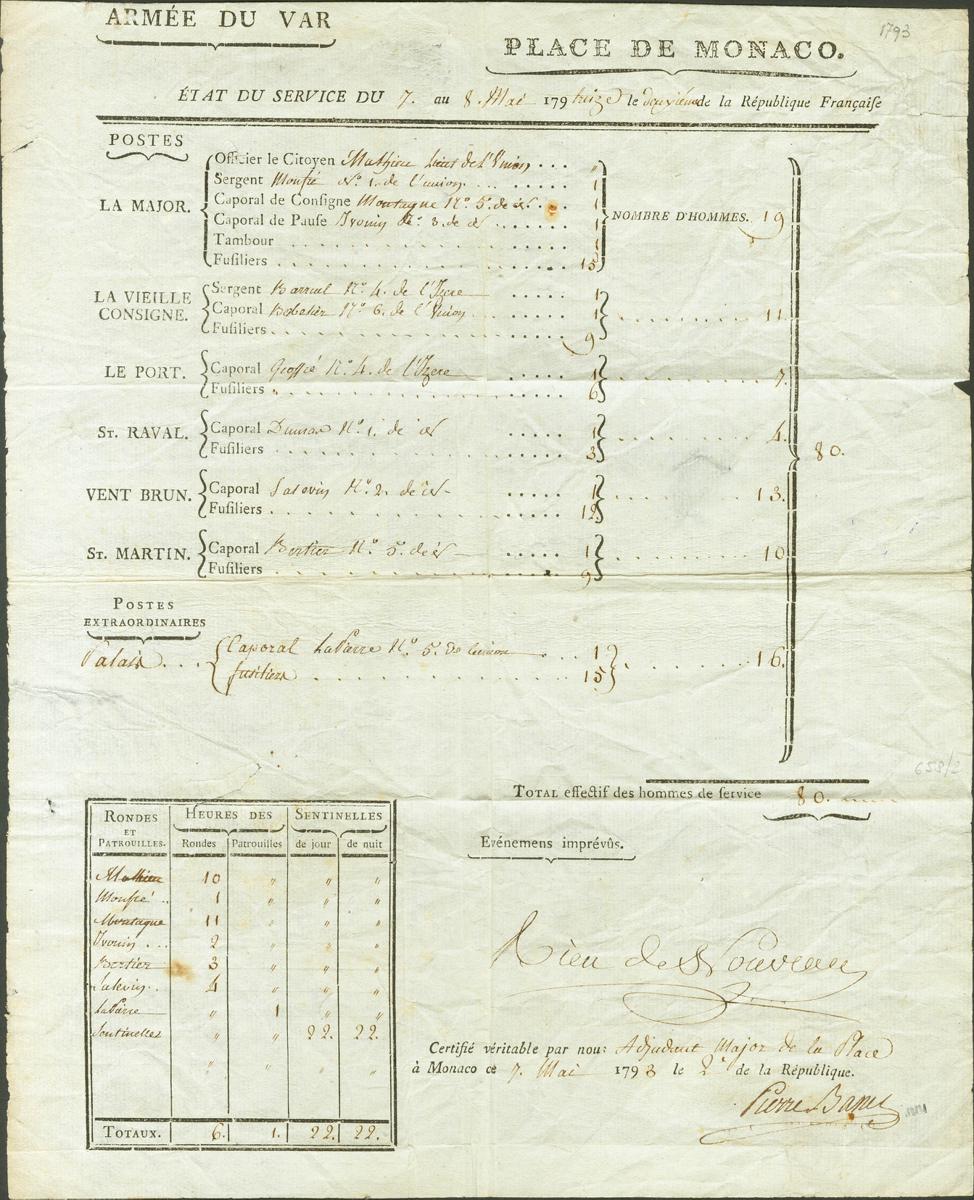 ARMÉE DU VAR
1793
PLACE DE MONACO.
ÉTAT DU SERVICE DU 7. au 8. Mai 179 treize le deuxième de la République Française
POSTES
LA MAJOR.
Officier le Citoyen Mathieu de l'Union .... "
Sergent Monfié No. 1. de l'union .... 1
Caporal de Consigne Montagne No. 5. de id .... 1
Caporal de Pause Ivouin No. 3. de id .... 1
Tambour .... 1
Fusiliers .... 15
NOMBRE D'HOMMES. 19
LA VIEILLE CONSIGNE.
Sergent Barruel No. 4. de l'Izere .... 1
Caporal No. 6. de l'Union .... 1
Fusiliers .... 9
11
LE PORT.
Caporal No. 4. de l'Izere .... 1
Fusiliers .... 6
7.
ST. RAVAL.
Caporal No. 1. de id .... 1
Fusiliers .... 3
4.
80.
VENT BRUN.
Caporal No. 2. de id .... 1
Fusiliers .... 12
13.
ST. MARTIN.
Caporal Bertier No. 5. de id .... 1
Fusiliers .... 9
10
POSTES
EXTRAORDINAIRES
Palais ...
Caporal LaPierre No. 5. de lunion .... 1
fusiliers .... 15
16.
658/2
TOTAL effectif des hommes de service 80.
RONDES ET PATROUILLES. HEURES DES SENTINELLES
Rondes Patrouilles de jour de nuit
Mathieu 10 " " "
Monfié .. 1 " " "
Montagne 11 " " "
Ivouin ... 2 " " "
Bertier 3 " " "
4 " " "
LaPierre " 1 " "
Sentinelles " " 22. 22.
" " " "
TOTAUX. 6. 1. 22. 22.
Evénemens imprévûs.
Certifié véritable par nous Adjudant Major de la Place
à Monaco ce 7. Mai 1793 le 2e de la République.
Pierre